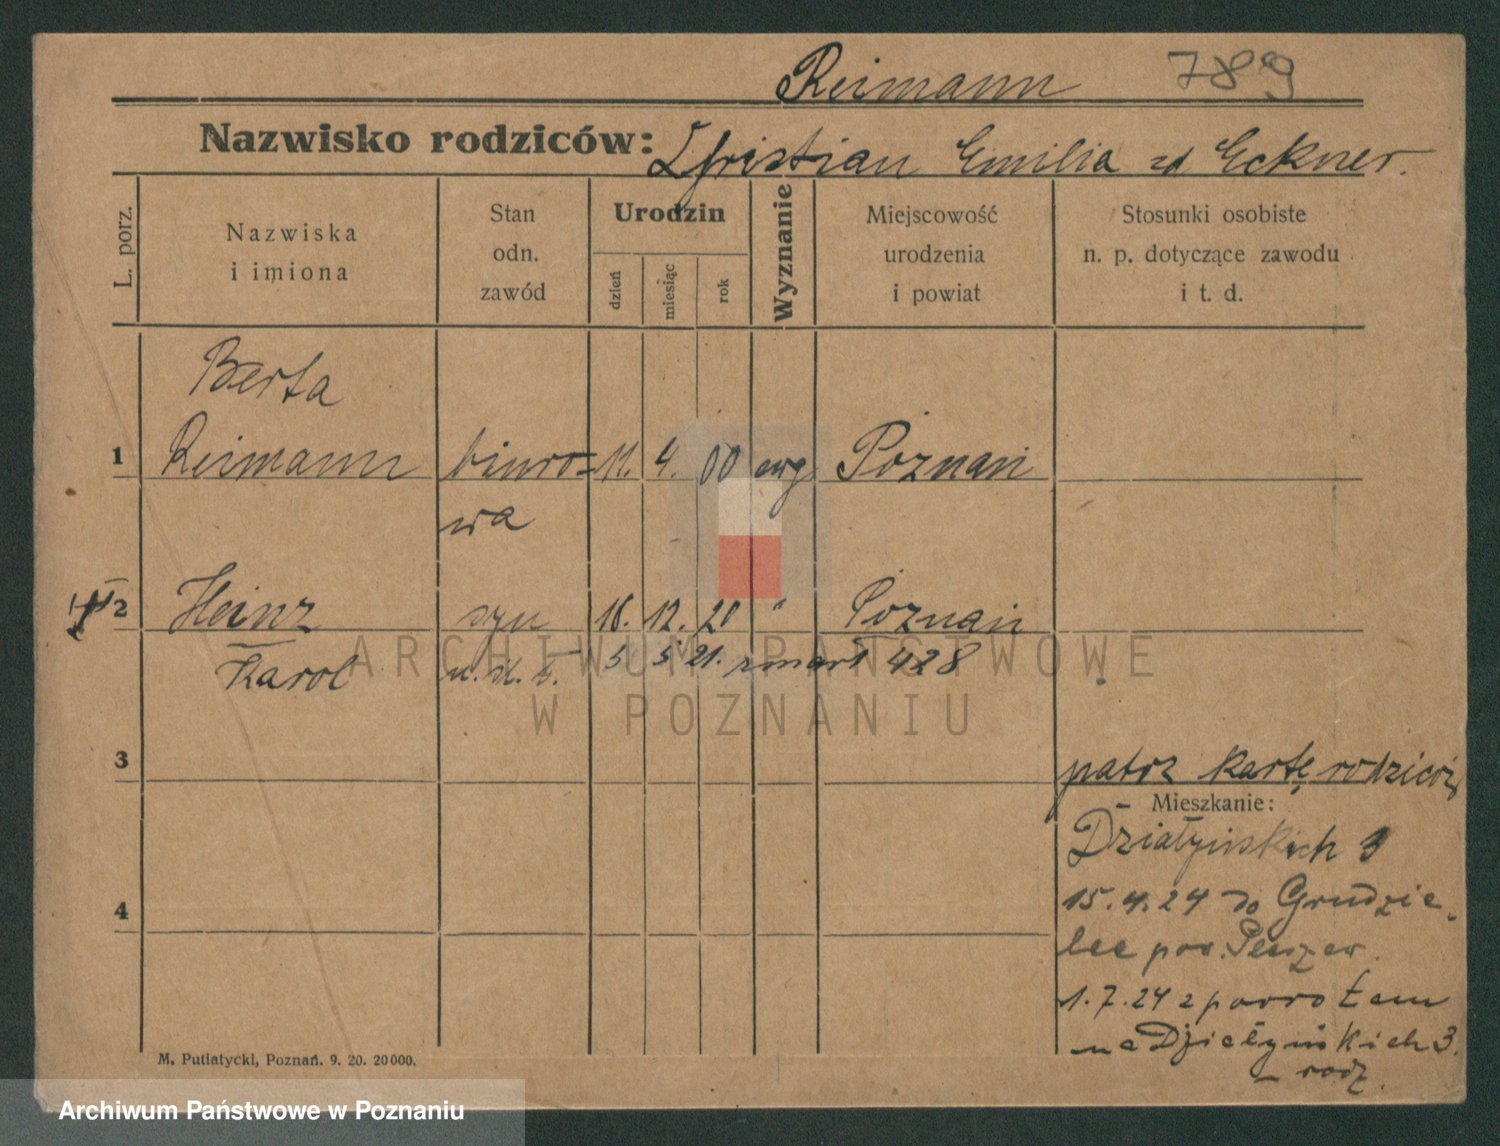 Reimann 789
Nazwisko rodziców: Christian Emilia zd Eckner.
L. porz.
Nazwiska
i imiona
Stan
odn.
zawód
Urodzin
dzień
miesiąc
rok
Wyznanie
Miejscowość
urodzenia
i powiat
Stosunki osobiste
n. p. dotyczące zawodu
i t. d.
Berta
1 Reimann biuro= 11. 4. 00 ewg Poznań
wa
2 Heinz syn 18. 12. 20 " Poznań
Karol 5 5 21. zmarł 428
3
patrz kartę rodziców
Mieszkanie:
Działyńskich 3
15.4.24 do Grudzie
lec pow. Pleszew.
4
1.7.24 z powrotem
na Działyńskich 3.
rodz.
M. Putiatycki, Poznań. 9. 20. 20000.
ARCHIWUM PAŃSTWOWE
W POZNANIU
Archiwum Państwowe w Poznaniu